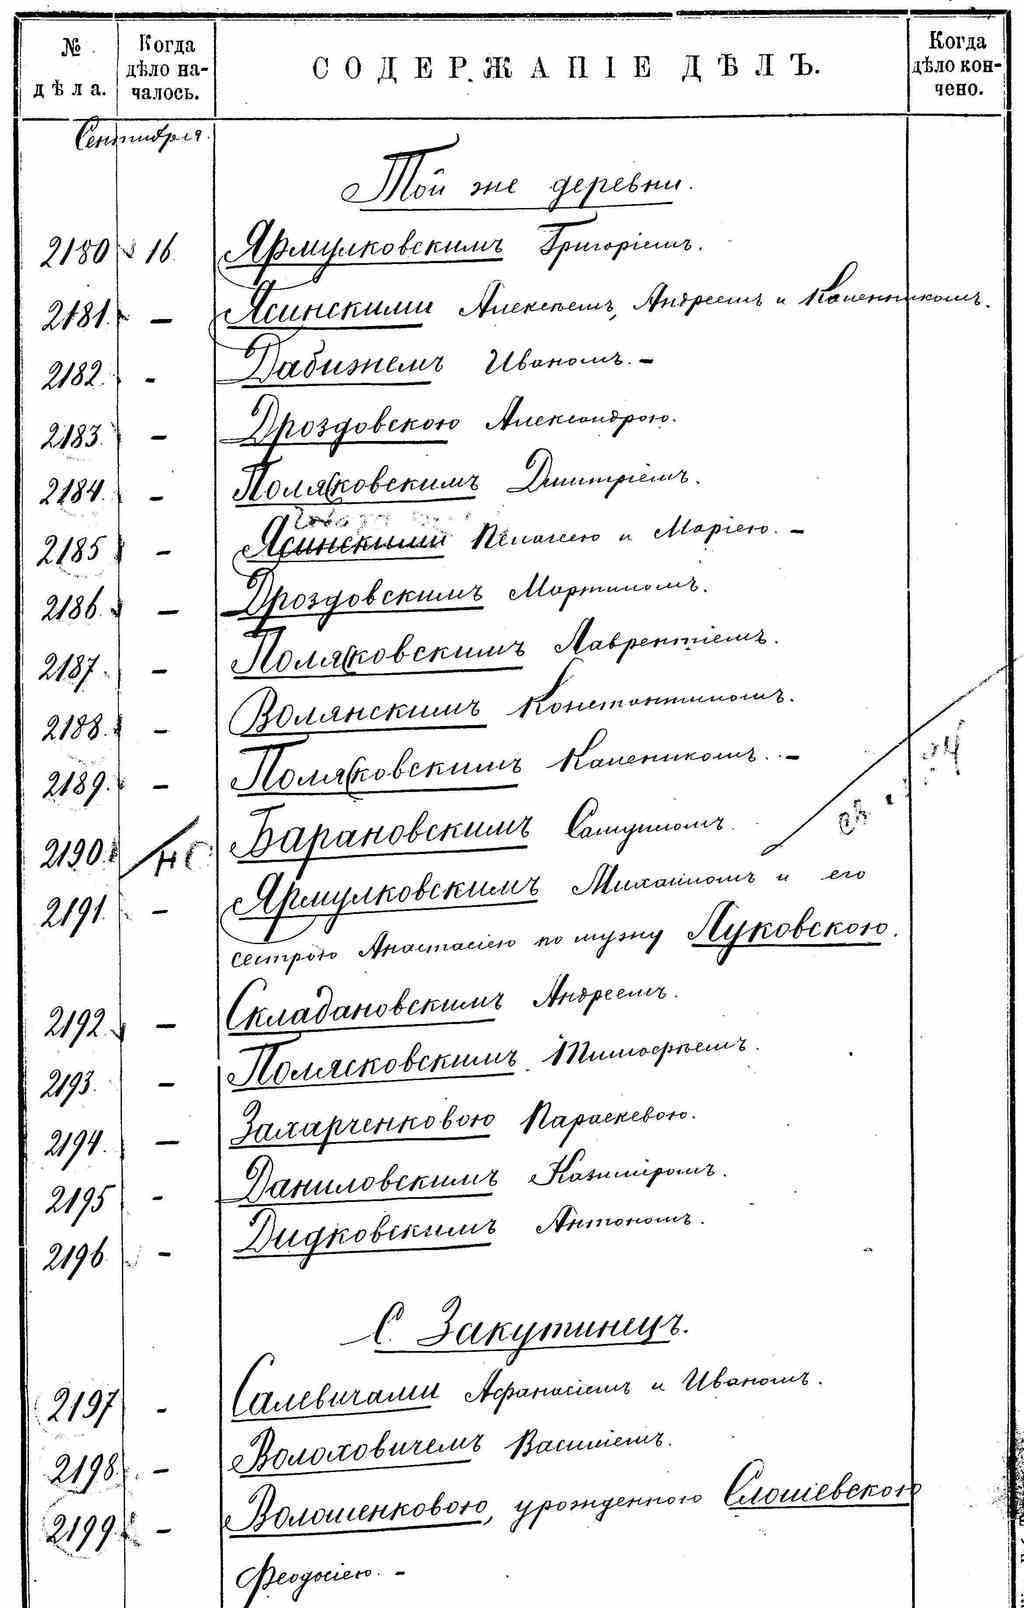 № дѣла. Когда дѣло началось. СОДЕРЖАНІЕ ДѢЛЪ. Когда дѣло кончено.
Сентября.
Той же деревни.
2180 16 Ярмулковскимъ Григоріемъ.
2181. — Ясинскими Алексѣемъ, Андреемъ и Каленникомъ.
2182. - Дабижемъ Иваномъ. —
2183. — Дроздовскою Александрою.
2184. — Полясковскимъ Дмитріемъ.
2185 — Ясинскими Пелагеею и Маріею. —
2186. — Дроздовскимъ Мартиномъ.
2187. — Полясковскимъ Лаврентіемъ.
2188. — Волянскимъ Константиномъ.
2189. — Полясковскимъ Калеником. —
2190. Барановскимъ
2191. — Ярмулковскимъ Михаиломъ и его
сестрою Анастасіею по мужу Луковскою.
2192. — Складановскимъ Андреемъ.
2193. — Полясковскимъ Тимофѣемъ.
2194. — Захарченковою Параскевою.
2195 - Даниловскимъ Казиміромъ.
2196. - Дидковскимъ Антономъ.
С. Закутинецъ.
2197 - Салевичами Афанасіемъ и Иваномъ.
2198. — Волоховичемъ Василіемъ.
2199. — Волошенковою, урожденною Слошевскою
Феодосіею. —